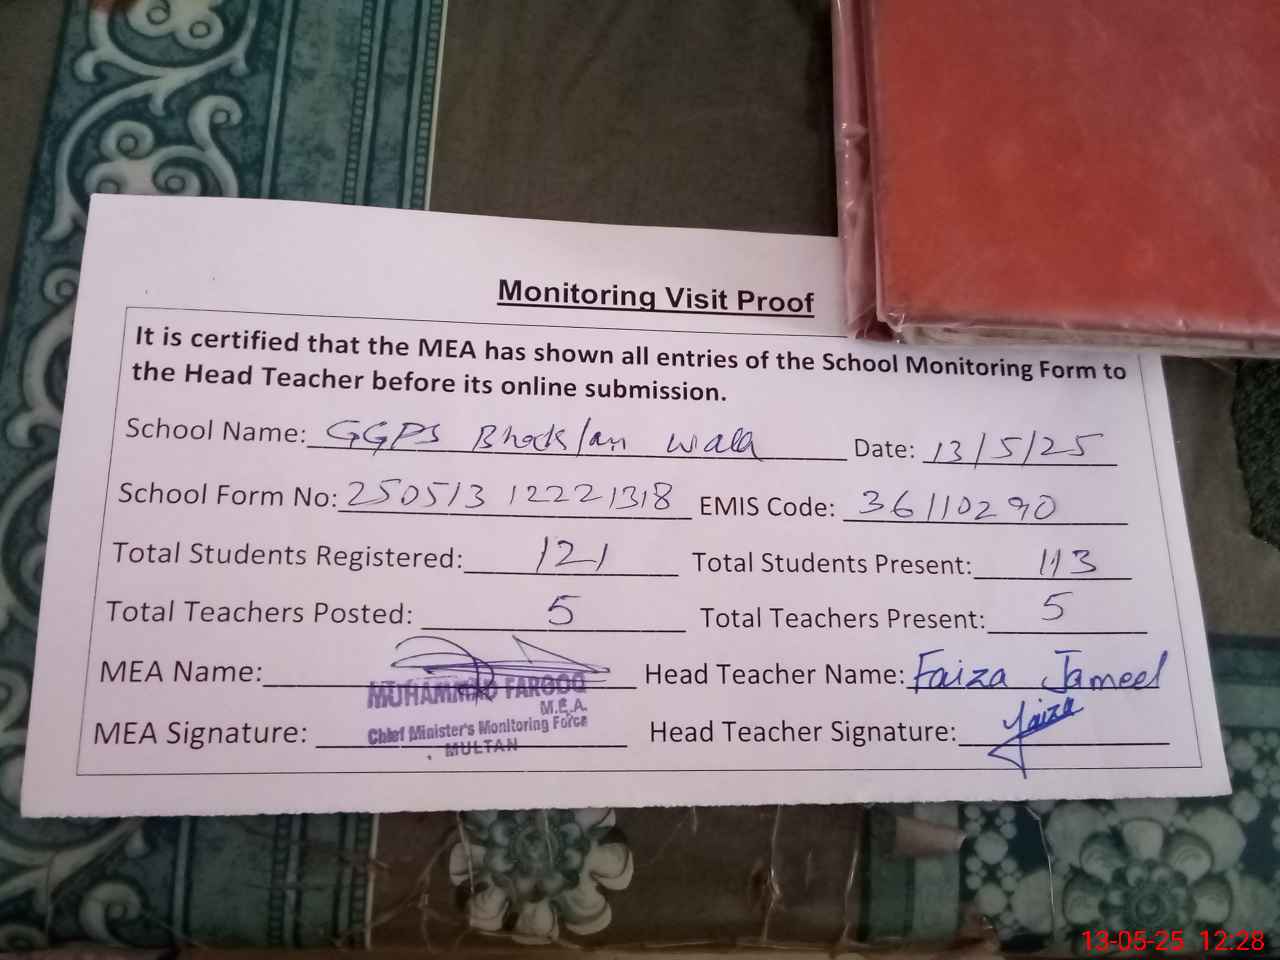 Monitoring Visit Proof
It is certified that the MEA has shown all entries of the School Monitoring Form to
the Head Teacher before its online submission.
School Name: GGPS Bhocklan wala Date: 13/5/25
School Form No: 250513 12221318 EMIS Code: 36110290
Total Students Registered: 121 Total Students Present: 113
Total Teachers Posted: 5 Total Teachers Present: 5
MEA Name: Head Teacher Name: Faiza Jameel
MUHAMMAD FAROOQ
M.E.A.
Chief Minister's Monitoring Force
MULTAN
MEA Signature: Head Teacher Signature: Faiza
13-05-25 12:28